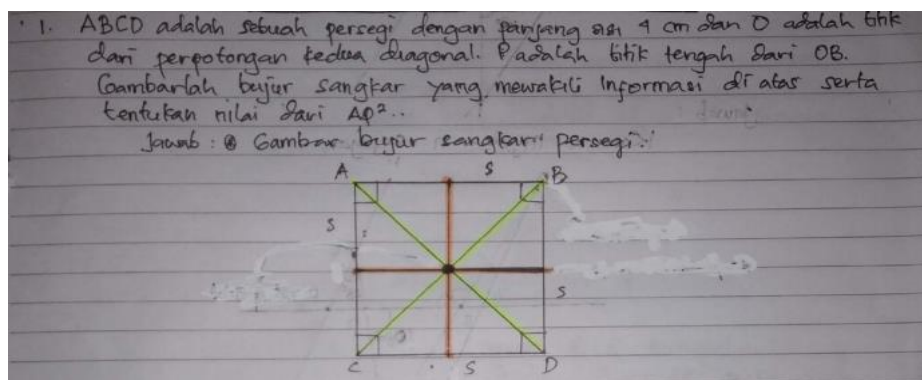 1. ABCD adalah sebuah persegi dengan panjang sisi 4 cm dan O adalah titik
dari perpotongan kedua diagonal. P adalah titik tengah dari OB.
Gambarlah bujur sangkar yang mewakili informasi di atas serta
tentukan nilai dari AP²..
Jawab : Gambar bujur sangkar persegi :
A
S
B
S
S
C
S
D